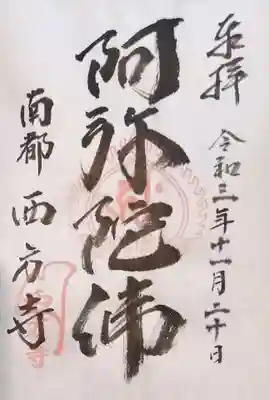 奉拝 令和三年十一月二十日
阿弥陀佛
南都 西方寺